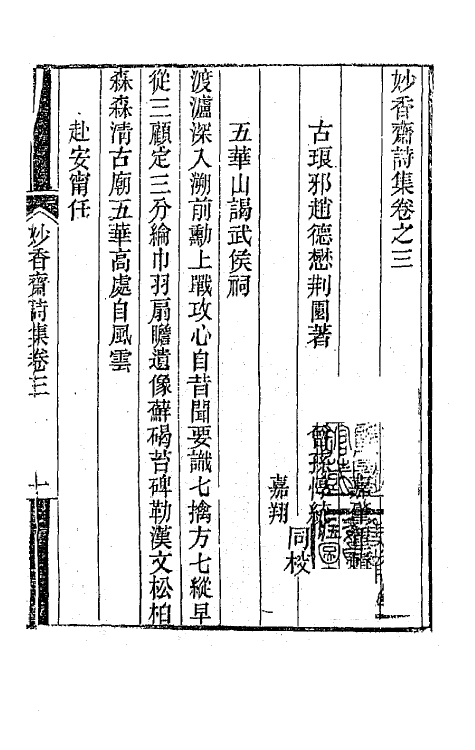 妙香齋詩集卷之三
古琅邪趙德懋荊園著
孫
嘉翔
同校
五華山謁武侯祠
渡瀘深入溯前勳上戰攻心自昔聞要識七擒方七縱早
從三顧定三分綸巾羽扇瞻遺像蘚碣苔碑勒漢文松柏
森森清古廟五華高處自風雲
赴安甯任
妙香齋詩集卷三
一